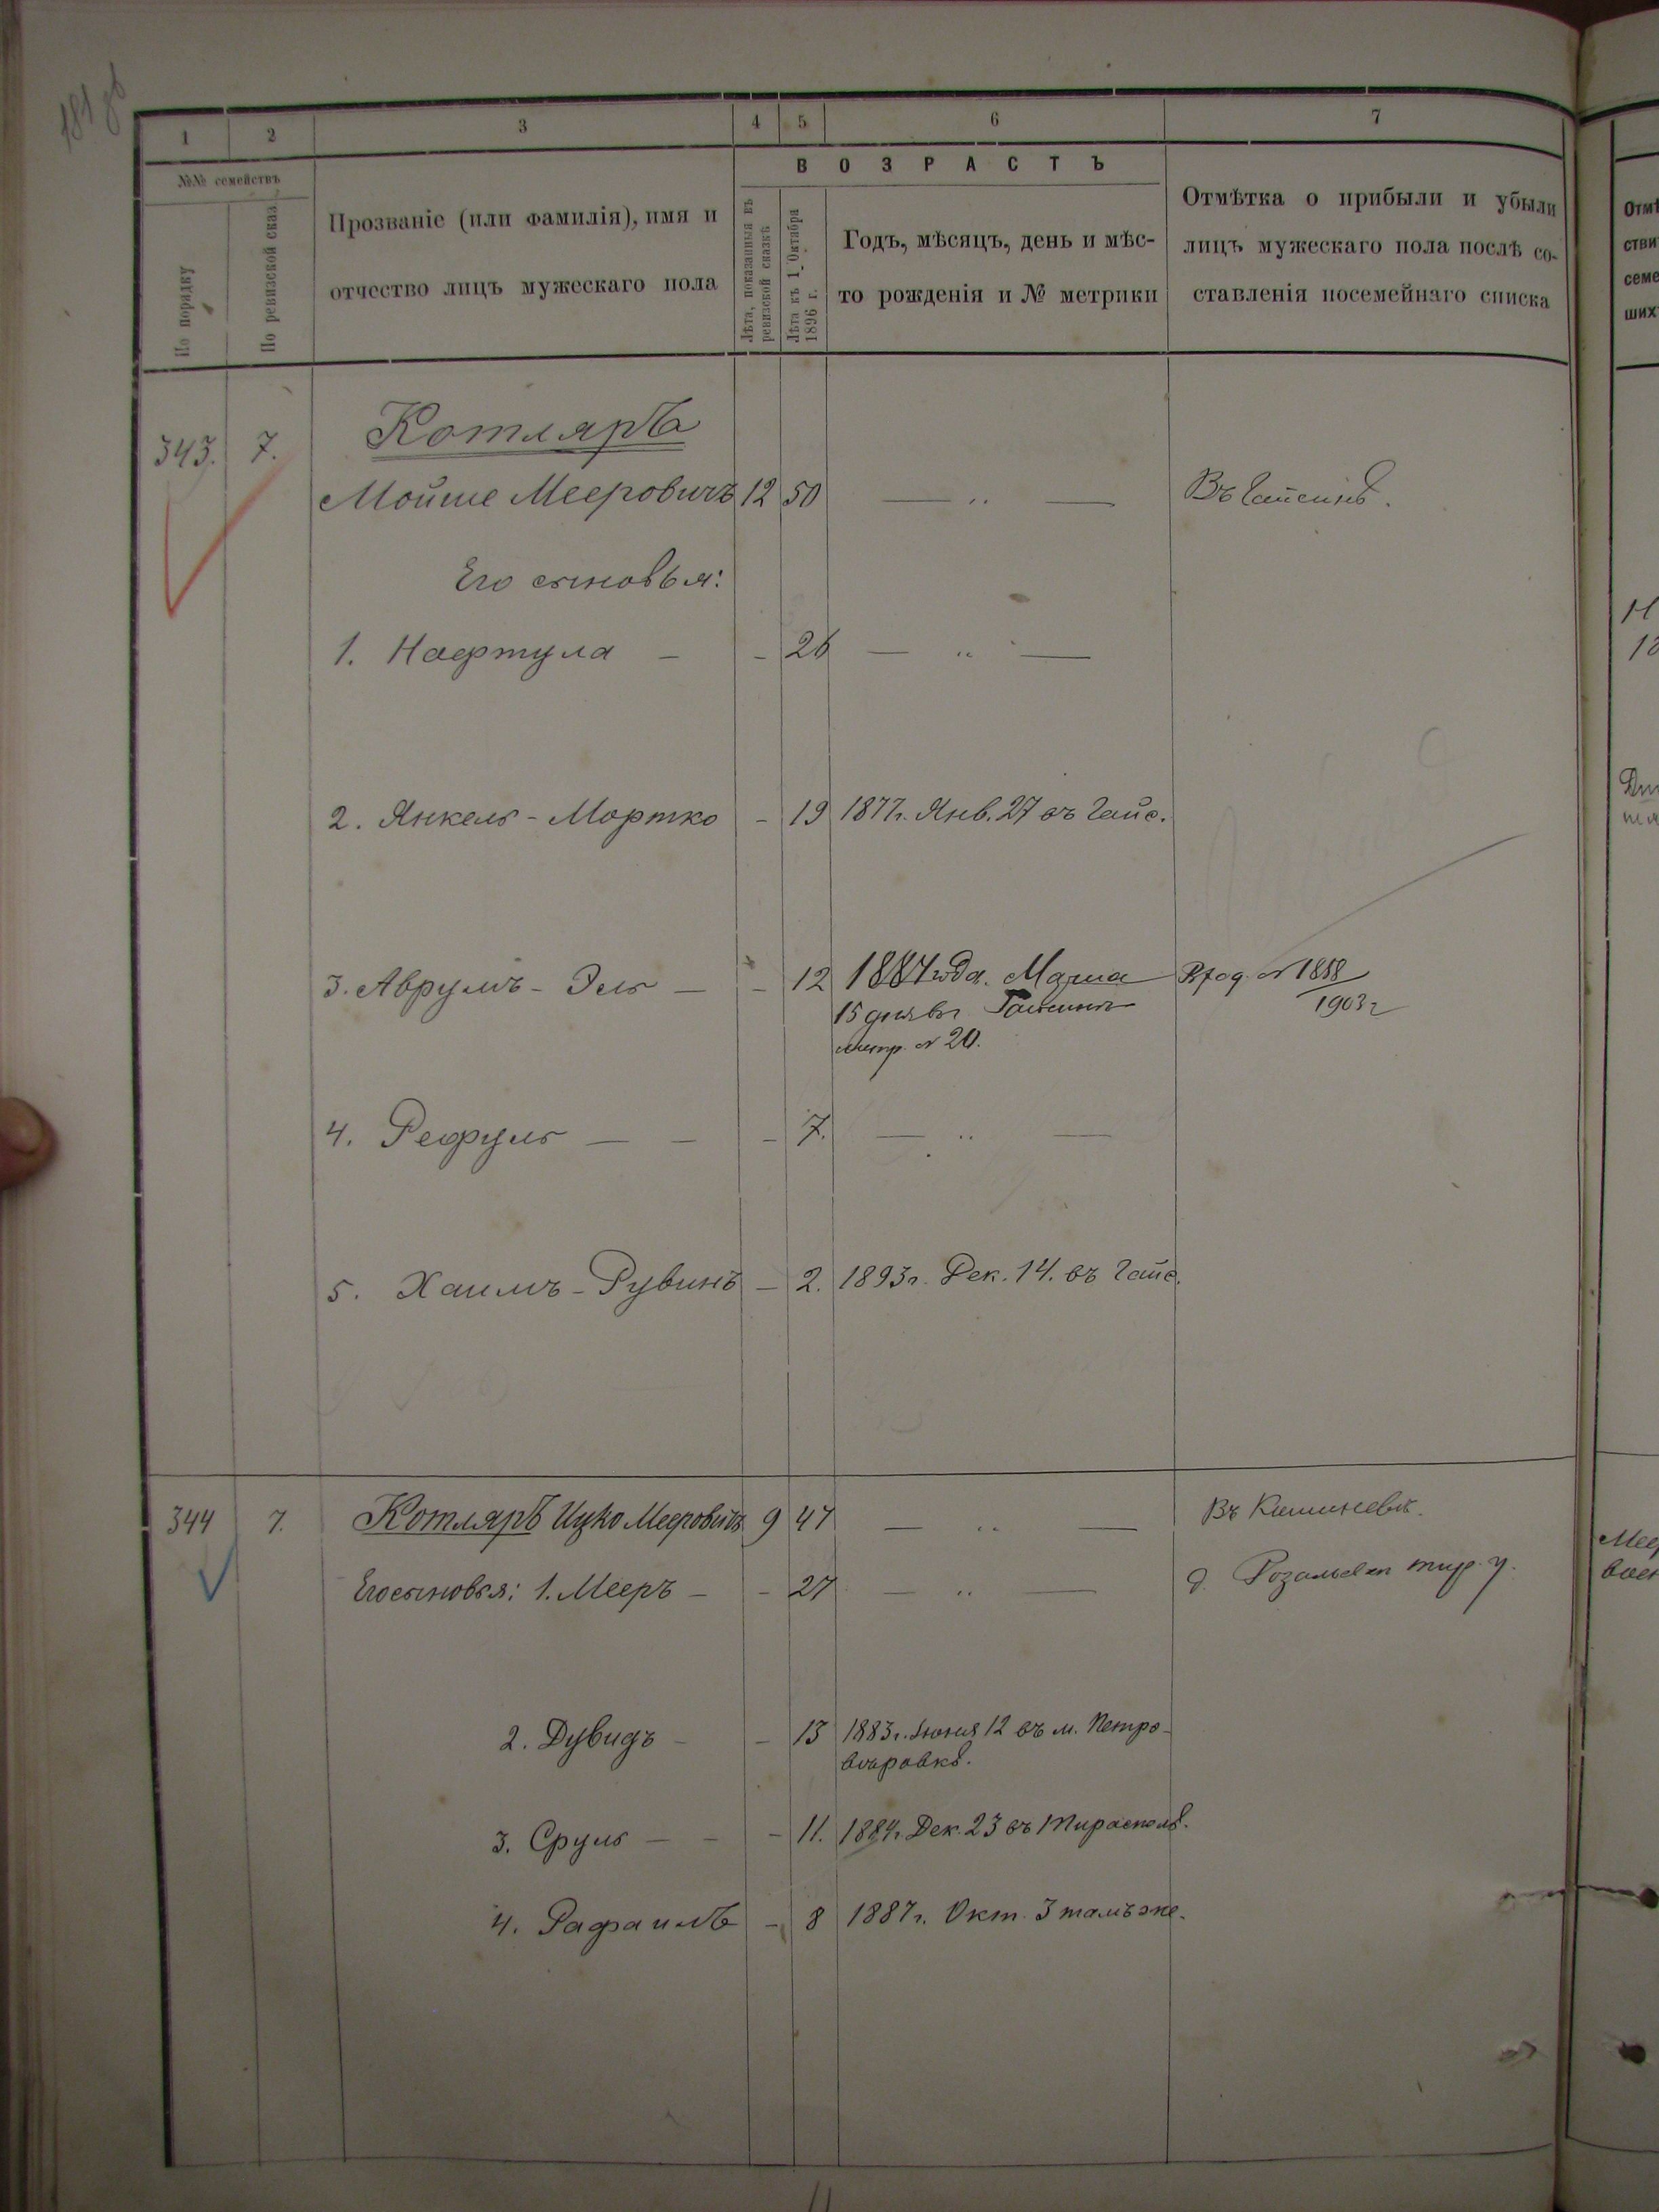 181 об
1 2 3 4 5 6 7
№№ семействъ
По порядку
По ревизской сказ.
Прозваніе (или фамилія), имя и
отчество лицъ мужескаго пола
ВОЗРАСТЪ
Лѣта, показанныя въ
ревизской сказкѣ
Лѣта къ 1 Октября
1896 г.
Годъ, мѣсяцъ, день и мѣс-
то рожденія и № метрики
Отмѣтка о прибыли и убыли
лицъ мужескаго пола послѣ со-
ставленія посемейнаго списка
343. 7. Котляръ
Мойше Мееровичъ 12 50 — „ — Въ Гайсинѣ.
Его сыновья:
1. Нафтула — - 26 — „ —
2. Янкель-Мортко - 19 1877 г. Янв. 27 въ Гайс.
3. Аврумъ-Эль — - 12 1884 года. Марта
15 дня въ г. Гайсинѣ
метр. № 20.
№ 1858
1903 г
4. Рефуль — — - 7. — „ —
5. Хаимъ-Рувинъ - 2. 1893 г. Дек. 14. въ Гайс.
344 7. Котляръ Ицко Мееровичъ 9 47 — „ — Въ Кишиневѣ.
Его сыновья: 1. Мееръ — - 27 — „ —
2. Дувидъ - - 13 1883 г. Іюня 12 въ м. Петро-
вѣровкѣ.
3. Сруль — - - 11. 1884 г. Дек. 23 въ Тирасполѣ.
4. Рафаилъ - 8 1887 г. Окт. 3 тамъ же.